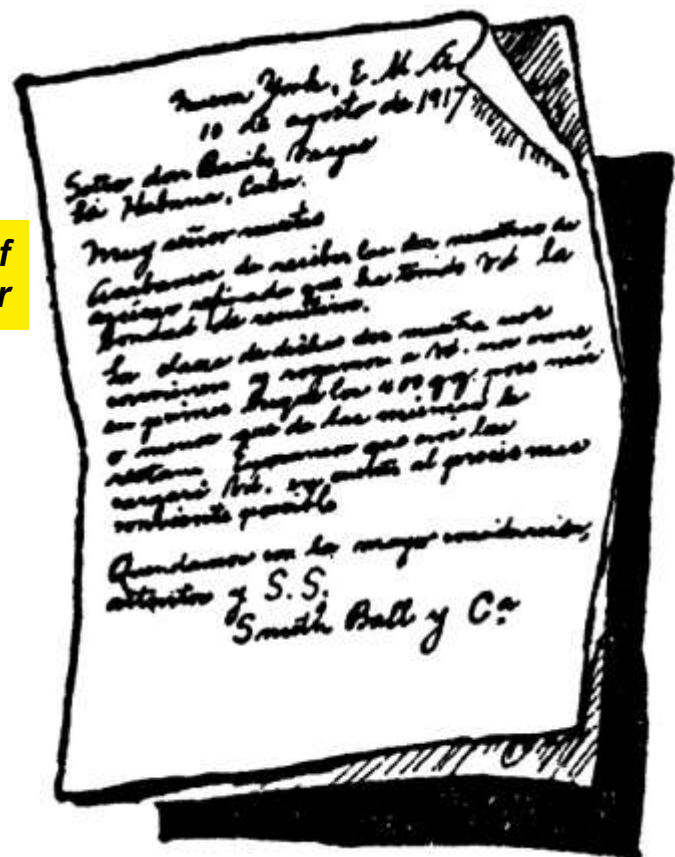 Nueva York, E. U. A.
10 de agosto de 1917
Señor don Basilo Vargas
La Habana, Cuba.
f
r
Muy señor nuestro
Acabamos de recibir las dos muestras de
azúcar refinado que ha tenido Vd la
bondad de remitirnos.
La clase de dichas dos muestra nos
convienen y rogamos a Vd. nos
en primer lugar los 400 qq. poco más
o menos que de las mismas le
restan. Esperamos que nos las
cargará Vd. en cuenta al precio mas
posible
Quedamos con la mayor consideración,
atentos y S. S.
Smith Ball y Cª